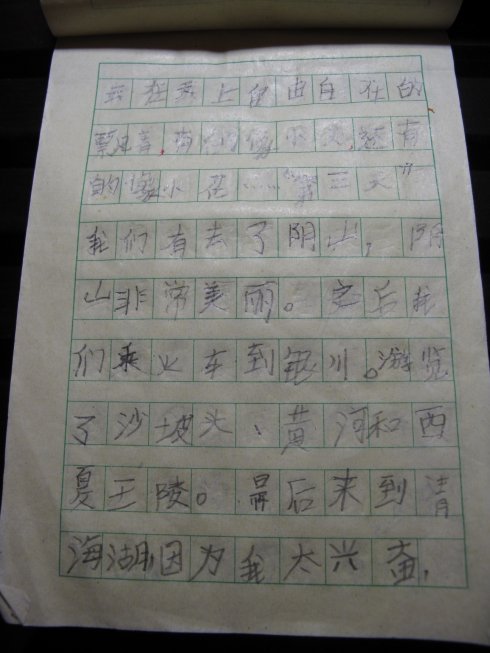 云在天上自由自在的
飘着,有的像小 有
的像小花……第三天
我们有去了阴山,阴
山非常美丽。之后我
们乘火车到银川。游览
了沙坡头、黄河和西
夏王陵。最后来到青
海湖因为我太兴奋,